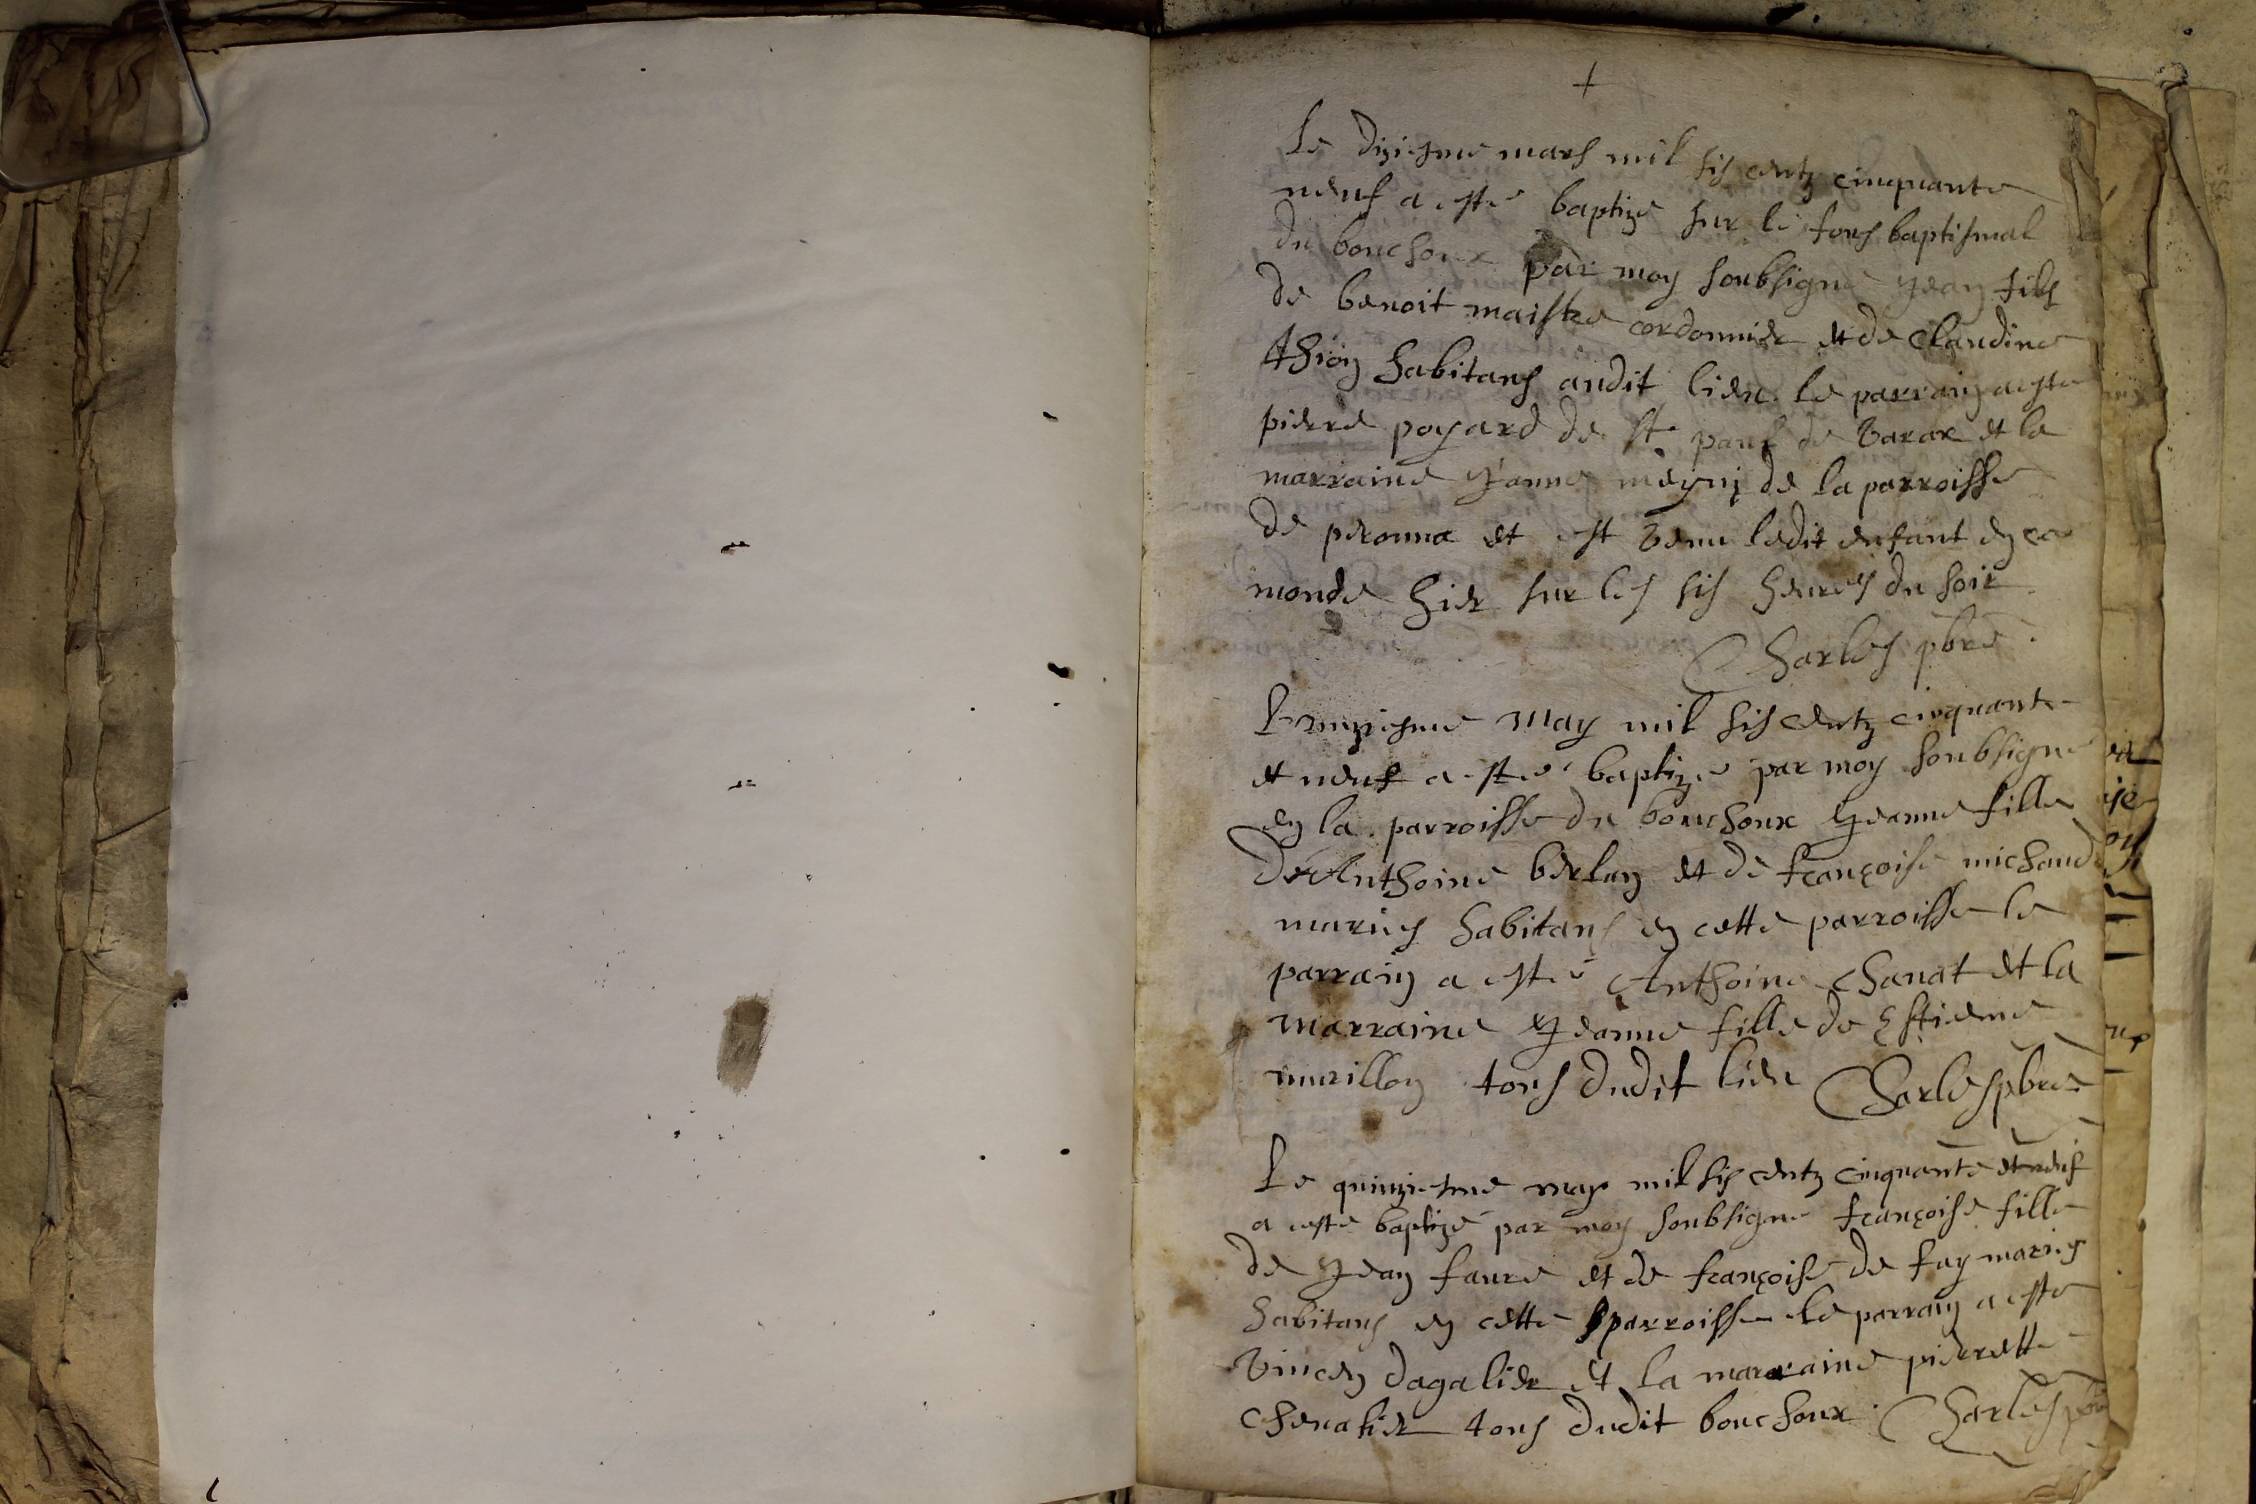 +
Le diziesme mars mil sis centz cinquante
neuf a esté baptizé sur le fons baptismal
du bouchoux par moy soubsigné Jean fils
de benoit maistre cordonnier et de Claudine
habitans audit lieu le parrain a esté
pierre poyard de St paul de Varax et la
marraine Jeanne de la parroisse
de peronna et est venu ledit enfant en ce
monde hier sur les sis heures du soir
Charles pbre
may mil sis centz cinquante
et neuf a esté baptizée par moy soubsigné
en la parroisse du bouchoux Jeanne fille
de Anthoine et de françoise michaud
mariés habitans en cette parroisse le
parrain a esté Anthoine Chanat et la
marraine Jeanne fille de Estienne
murillon tous dudit lieu Charles pbre
Le quinziesme may mil sis centz cinquante et neuf
a esté baptizé par moy soubsigné françoise fille
de Jean faure et de françoise de fay mariés
habitans en cette parroisse le parrain a esté
Vincen dagalier et la marraine pierrette
Chevalier tous dudit bouchoux Charles pbre